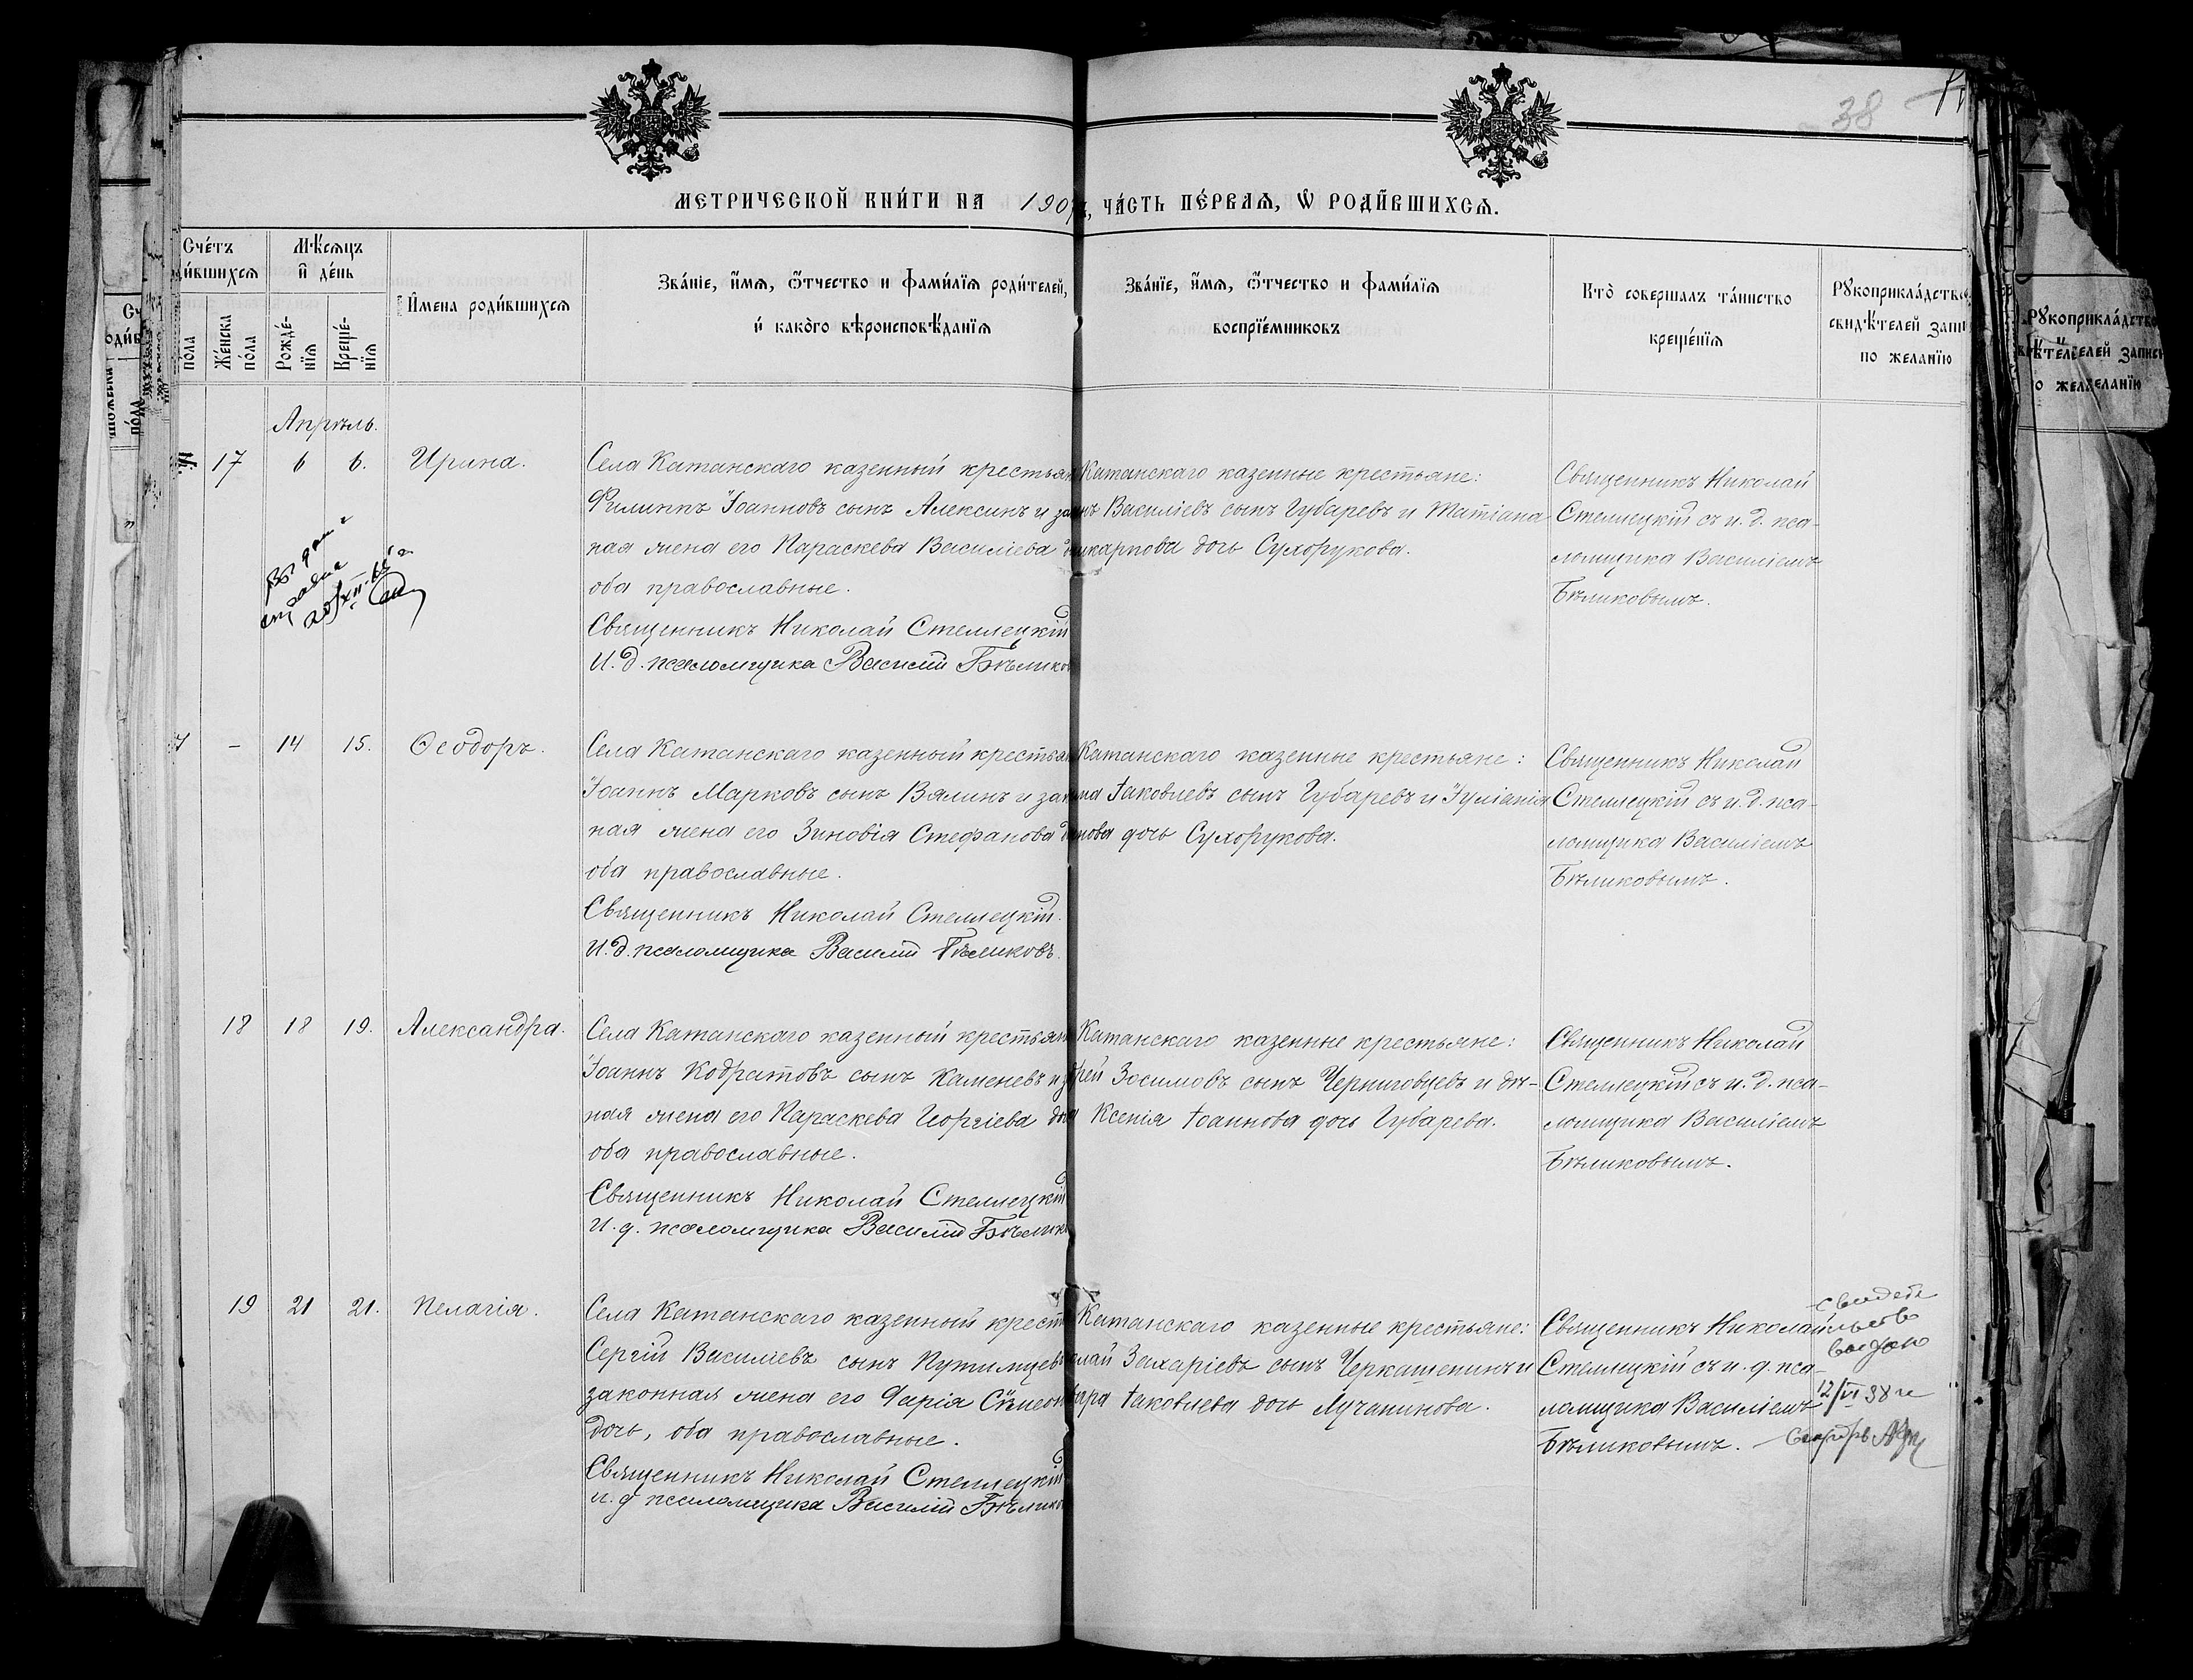 38
МЕТРИЧЕСКОЙ КНИ́ГИ НА 190 ЧА́СТЬ ПЕ́РВАѦ, Ѽ РОДИ́ВШИХСѦ.
Сче́тъ
ди́вшихсѧ
По́ла
Же́нска по́ла
Мѣ́сѧцъ и́ де́нь
Рожде́-нїѧ
Креще́-нїѧ
И҆мена роди́вшихсѧ
Зва́нїе, и҆́мѧ, ѻ҆́тчество и фами́лїѧ роди́телей,
и҆ како́гѡ вѣроисповѣ́данїѧ
Зва́нїе, и҆́мѧ, ѻ҆́тчество и фами́лїѧ
воспрїе́мниковъ
Кто̀ соверша́лъ та́инство
креще́нїѧ
Рꙋкоприкла́дство
свидѣ́телей запи
по жела́нїю
Апрѣль.
17 6 6. Ирина.
Села Катанскаго казенный крестьян
Филиппъ Іоанновъ сынъ Алексинъ и за
ная жена его Параскева Василіева
оба православные.
Священникъ Николай Стеллецкій
И. д. псаломщика Василій Бѣликов
Катанскаго казенные крестьяне:
нъ Василіевъ сынъ Губаревъ и Татіана
икарпова дочь Сухорукова.
Священникъ Николай
Стеллецкій съ и. д. пса-
ломщика Василіемъ
Бѣликовымъ.
справка
20/XII
7 – 14 15. Ѳеодоръ.
Села Катанскаго казенный крестьян
Іоаннъ Марковъ сынъ Вялинъ и зак
ная жена его Зиновія Стефанова
оба православные.
Священникъ Николай Стеллецкій.
И. д. псаломщика Василій Бѣликовъ.
Катанскаго казенные крестьяне:
ма Іаковлевъ сынъ Губаревъ и Іуліанія
нова дочь Сухорукова.
Священникъ Николай
Стеллецкій съ и. д. пса-
ломщика Василіемъ
Бѣликовымъ.
18 18 19. Александра.
Села Катанскаго казенный крестьян
Іоаннъ Кодратовъ сынъ Каменевъ и з
ная жена его Параскева Георгіева до
оба православные.
Священникъ Николай Стеллецкій
И. д. псаломщика Василій Бѣлик
Катанскаго казенные крестьяне:
рей Зосимовъ сынъ Черниговцевъ и дѣ-
а Ксенія Іоаннова дочь Губарева.
Священникъ Николай
Стеллецкій съ и. д. пса-
ломщика Василіемъ
Бѣликовымъ.
19 21 21. Пелагія.
Села Катанскаго казенный крест
Сергій Василіевъ сынъ Путимцевъ
законная жена его Дарія Сѵмеон
дочь, оба православные.
Священникъ Николай Стеллецкій
и. д псаломщика Василій Бѣлико
Катанскаго казенные крестьяне:
олай Захаріевъ сынъ Черкашенинъ и
вара Іаковлева дочь Лучанинова.
Священникъ Николай
Стеллецкій съ и. д. пса-
ломщика Василіемъ
Бѣликовымъ.
свидете
льство
выдано
12/VI 38 г